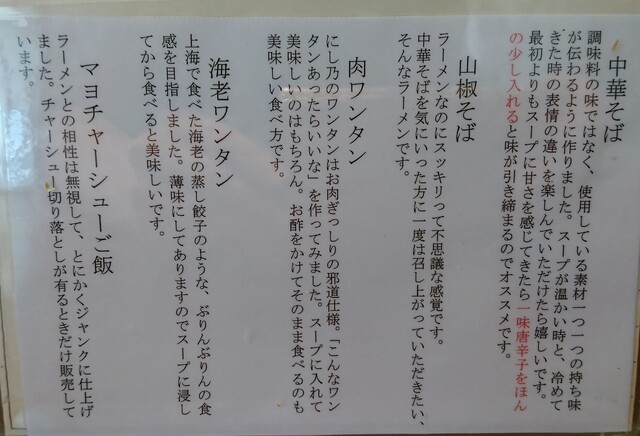 中華そば
調味料の味ではなく、使用している素材一つ一つの持ち味
が伝わるように作りました。スープが温かい時と、冷めて
きた時の表情の違いを楽しんでいただけたら嬉しいです。
最初よりもスープに甘さを感じてきたら一味唐辛子をほん
の少し入れると味が引き締まるのでオススメです。
山椒そば
ラーメンなのにスッキリって不思議な感覚です。
中華そばを気にいった方に一度は召し上がっていただきたい、
そんなラーメンです。
肉ワンタン
にし乃のワンタンはお肉ぎっしりの邪道仕様。「こんなワン
タンあったらいいな」を作ってみました。スープに入れて
美味しいのはもちろん。お酢をかけてそのまま食べるのも
美味しい食べ方です。
海老ワンタン
上海で食べた海老の蒸し餃子のような、ぷりんぷりんの食
感を目指しました。薄味にしてありますのでスープに浸し
てから食べると美味しいです。
マヨチャーシューご飯
ラーメンとの相性は無視して、とにかくジャンクに仕上げ
ました。チャーシュー切り落としが有るときだけ販売して
います。